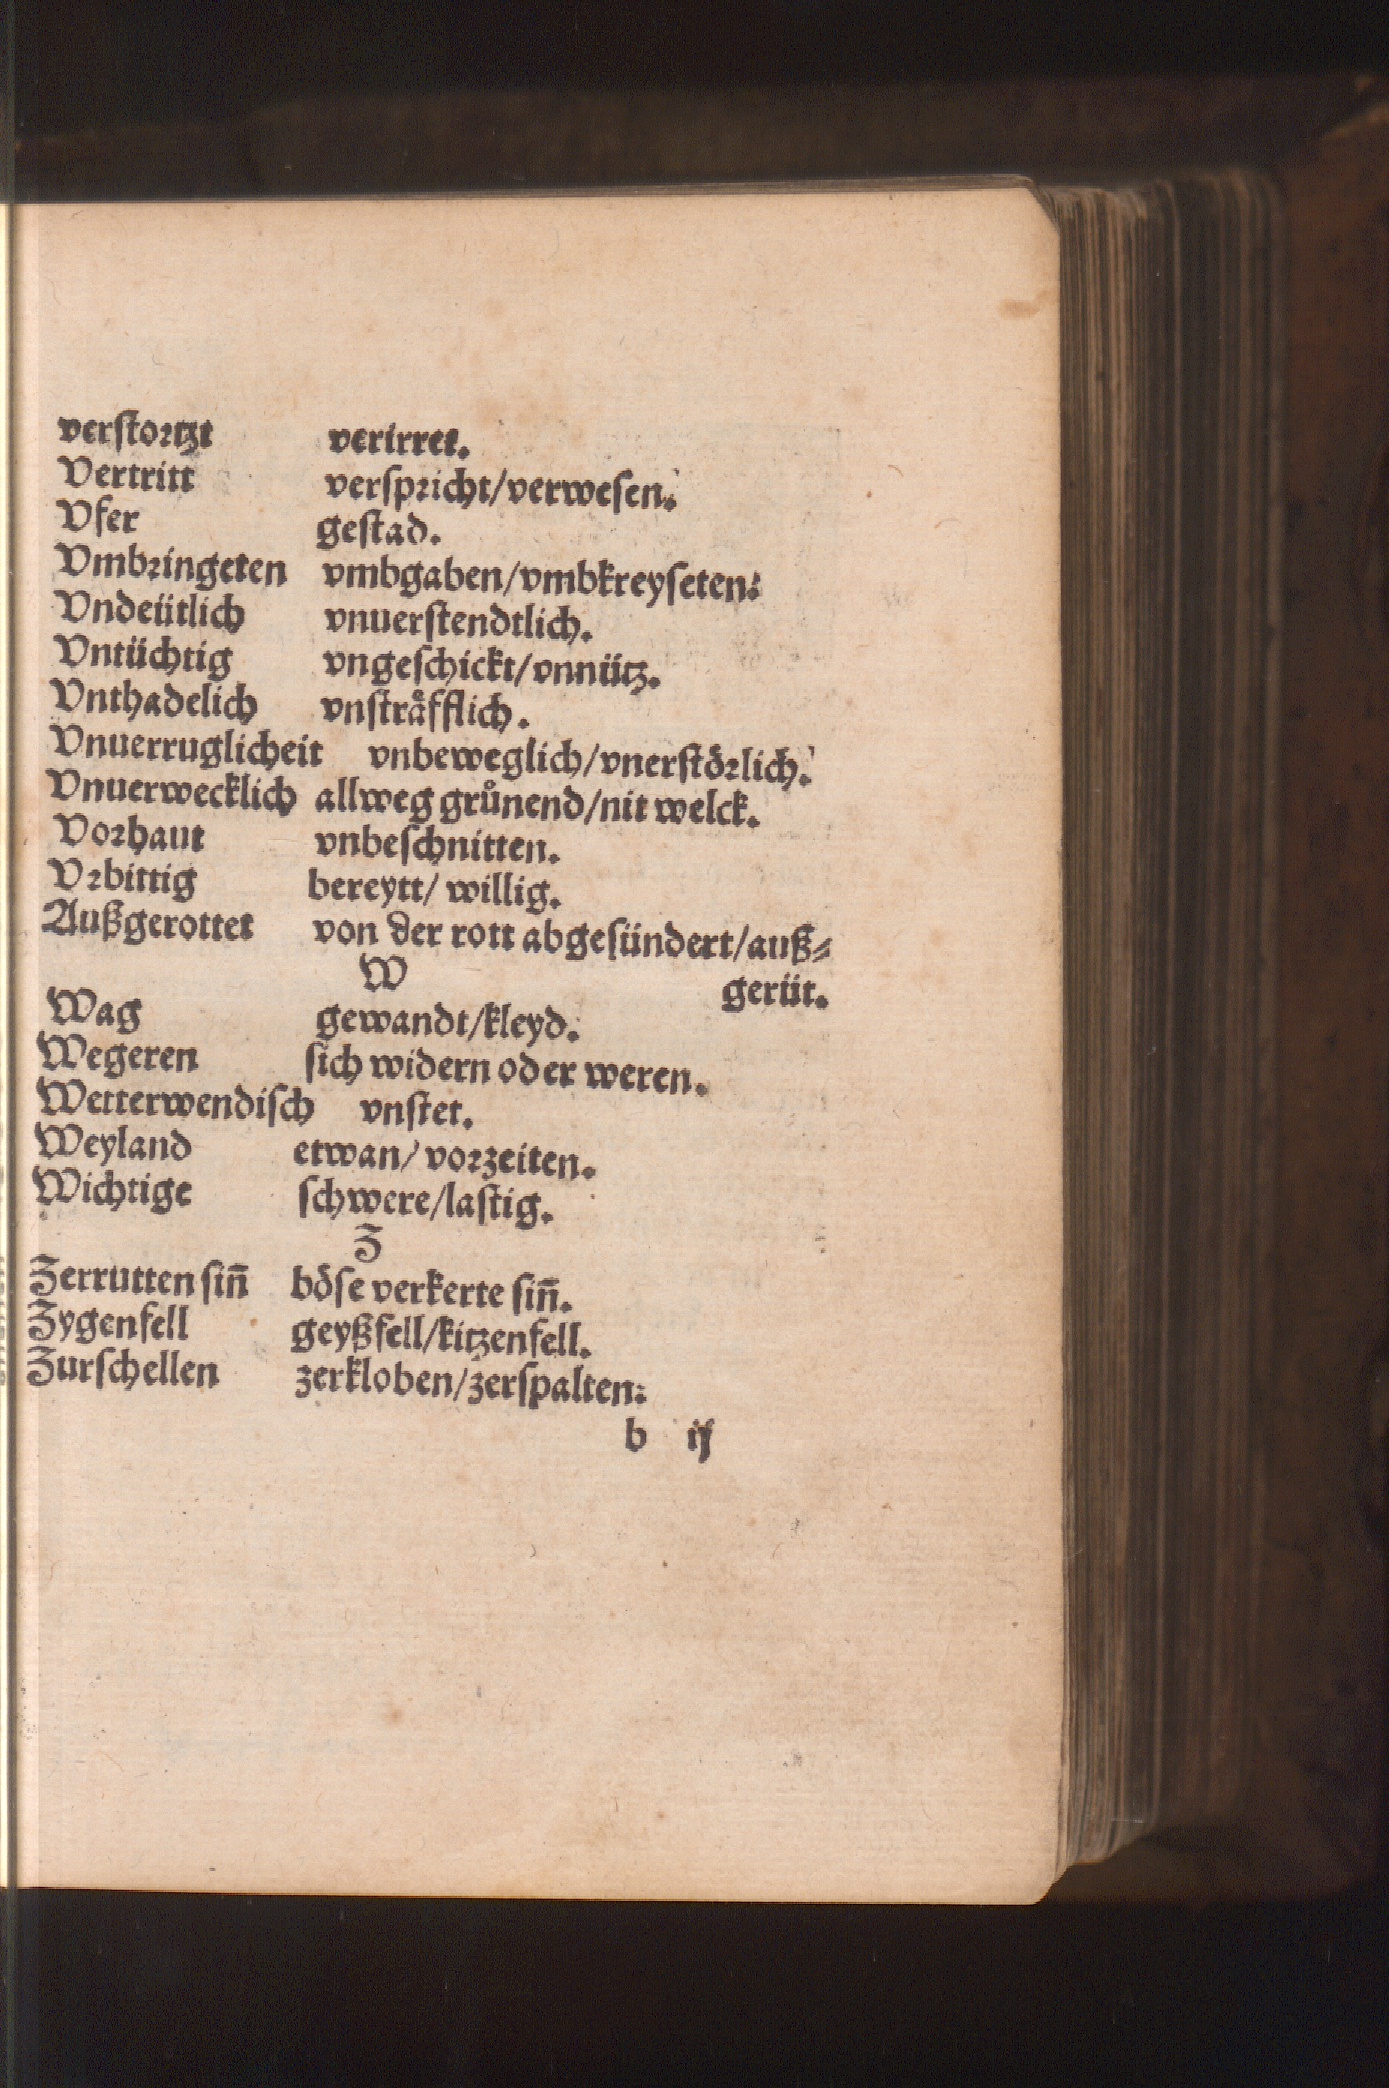 verstortzt verirret.
Vertritt verspricht/verwesen.
Vfer gestad.
Vmbringeten vmbgaben/vmbkreyseten.
Vndeütlich vnuerstendtlich.
Vntüchtig vngeschickt/vnnütz.
Vnthadelich vnstråfflich.
Vnuerruglicheit vnbeweglich/vnerstörlich.
Vnuerwecklich allweg grůnend/nit welck.
Vorhaut vnbeschnitten.
Vrbittig bereytt/ willig.
Außgerottet von der rott abgesündert/auß⸗
W gerüt.
Wag gewandt/kleyd.
Wegeren sich widern oder weren.
Wetterwendisch vnstet.
Weyland etwan/ vorzeiten.
Wichtige schwere/lastig.
Z
Zerrutten sin̄ böse verkerte sin̄.
Zygenfell geyßfell/kitzenfell.
Zurschellen zerkloben/zerspalten.
b ij